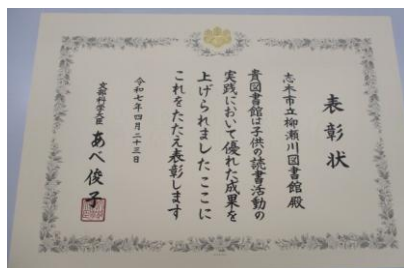 表彰状
志木市立柳瀬川図書館殿
貴図書館は子供の読書活動の
実践において優れた成果を
上げられましたここに
これをたたえ表彰します
令和七年四月二十三日
文部科学大臣 あべ俊子